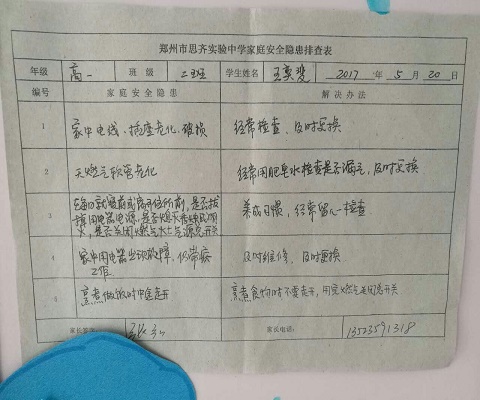 郑州市思齐实验中学家庭安全隐患排查表
年级 高一 班级 二班 学生姓名 王奕斐 2017 年 5 月 20 日
编号 家庭安全隐患 解决办法
1 家中电线、插座老化、破损 经常检查、及时更换
2 天燃气软管老化 经常用肥皂水检查是否漏气,及时更换
3 在每日就寝前或离开住所前,是否拔
掉用电器电源,是否熄灭香烛或明 养成习惯,经常留心检查
火,是否关闭燃气灶上气源总开关
4 家中用电器出现故障,仍带病 及时维修、及时更换
工作
5 烹煮做饭时中途走开 烹煮食物时不要走开,用完燃气关闭总开关
家长签字: 家长电话: 13523591318